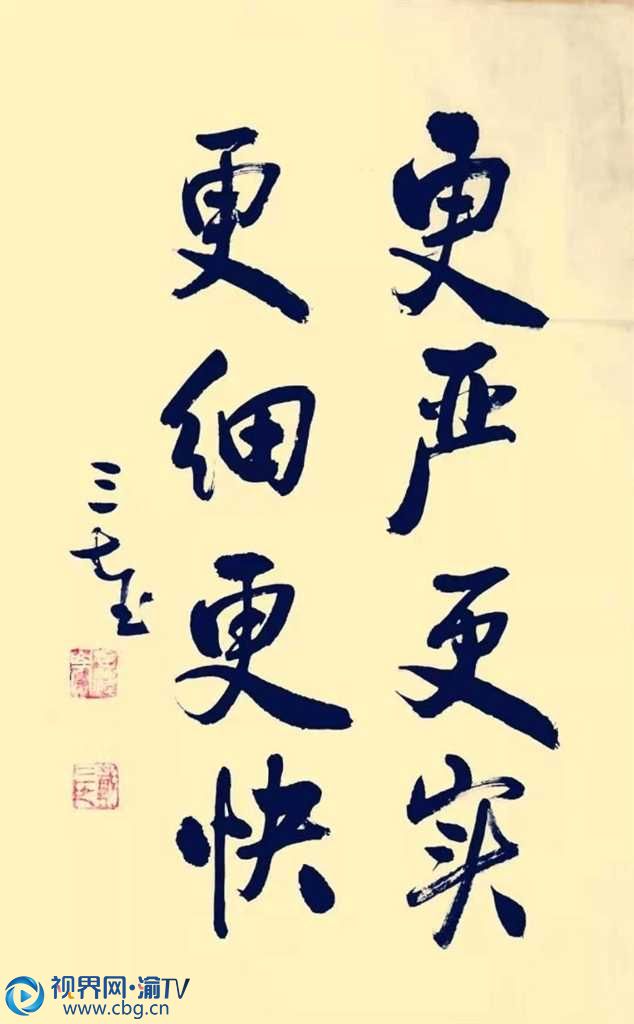 更严更实
更细更快
三七玉
视界网·渝TV
www.cbg.cn